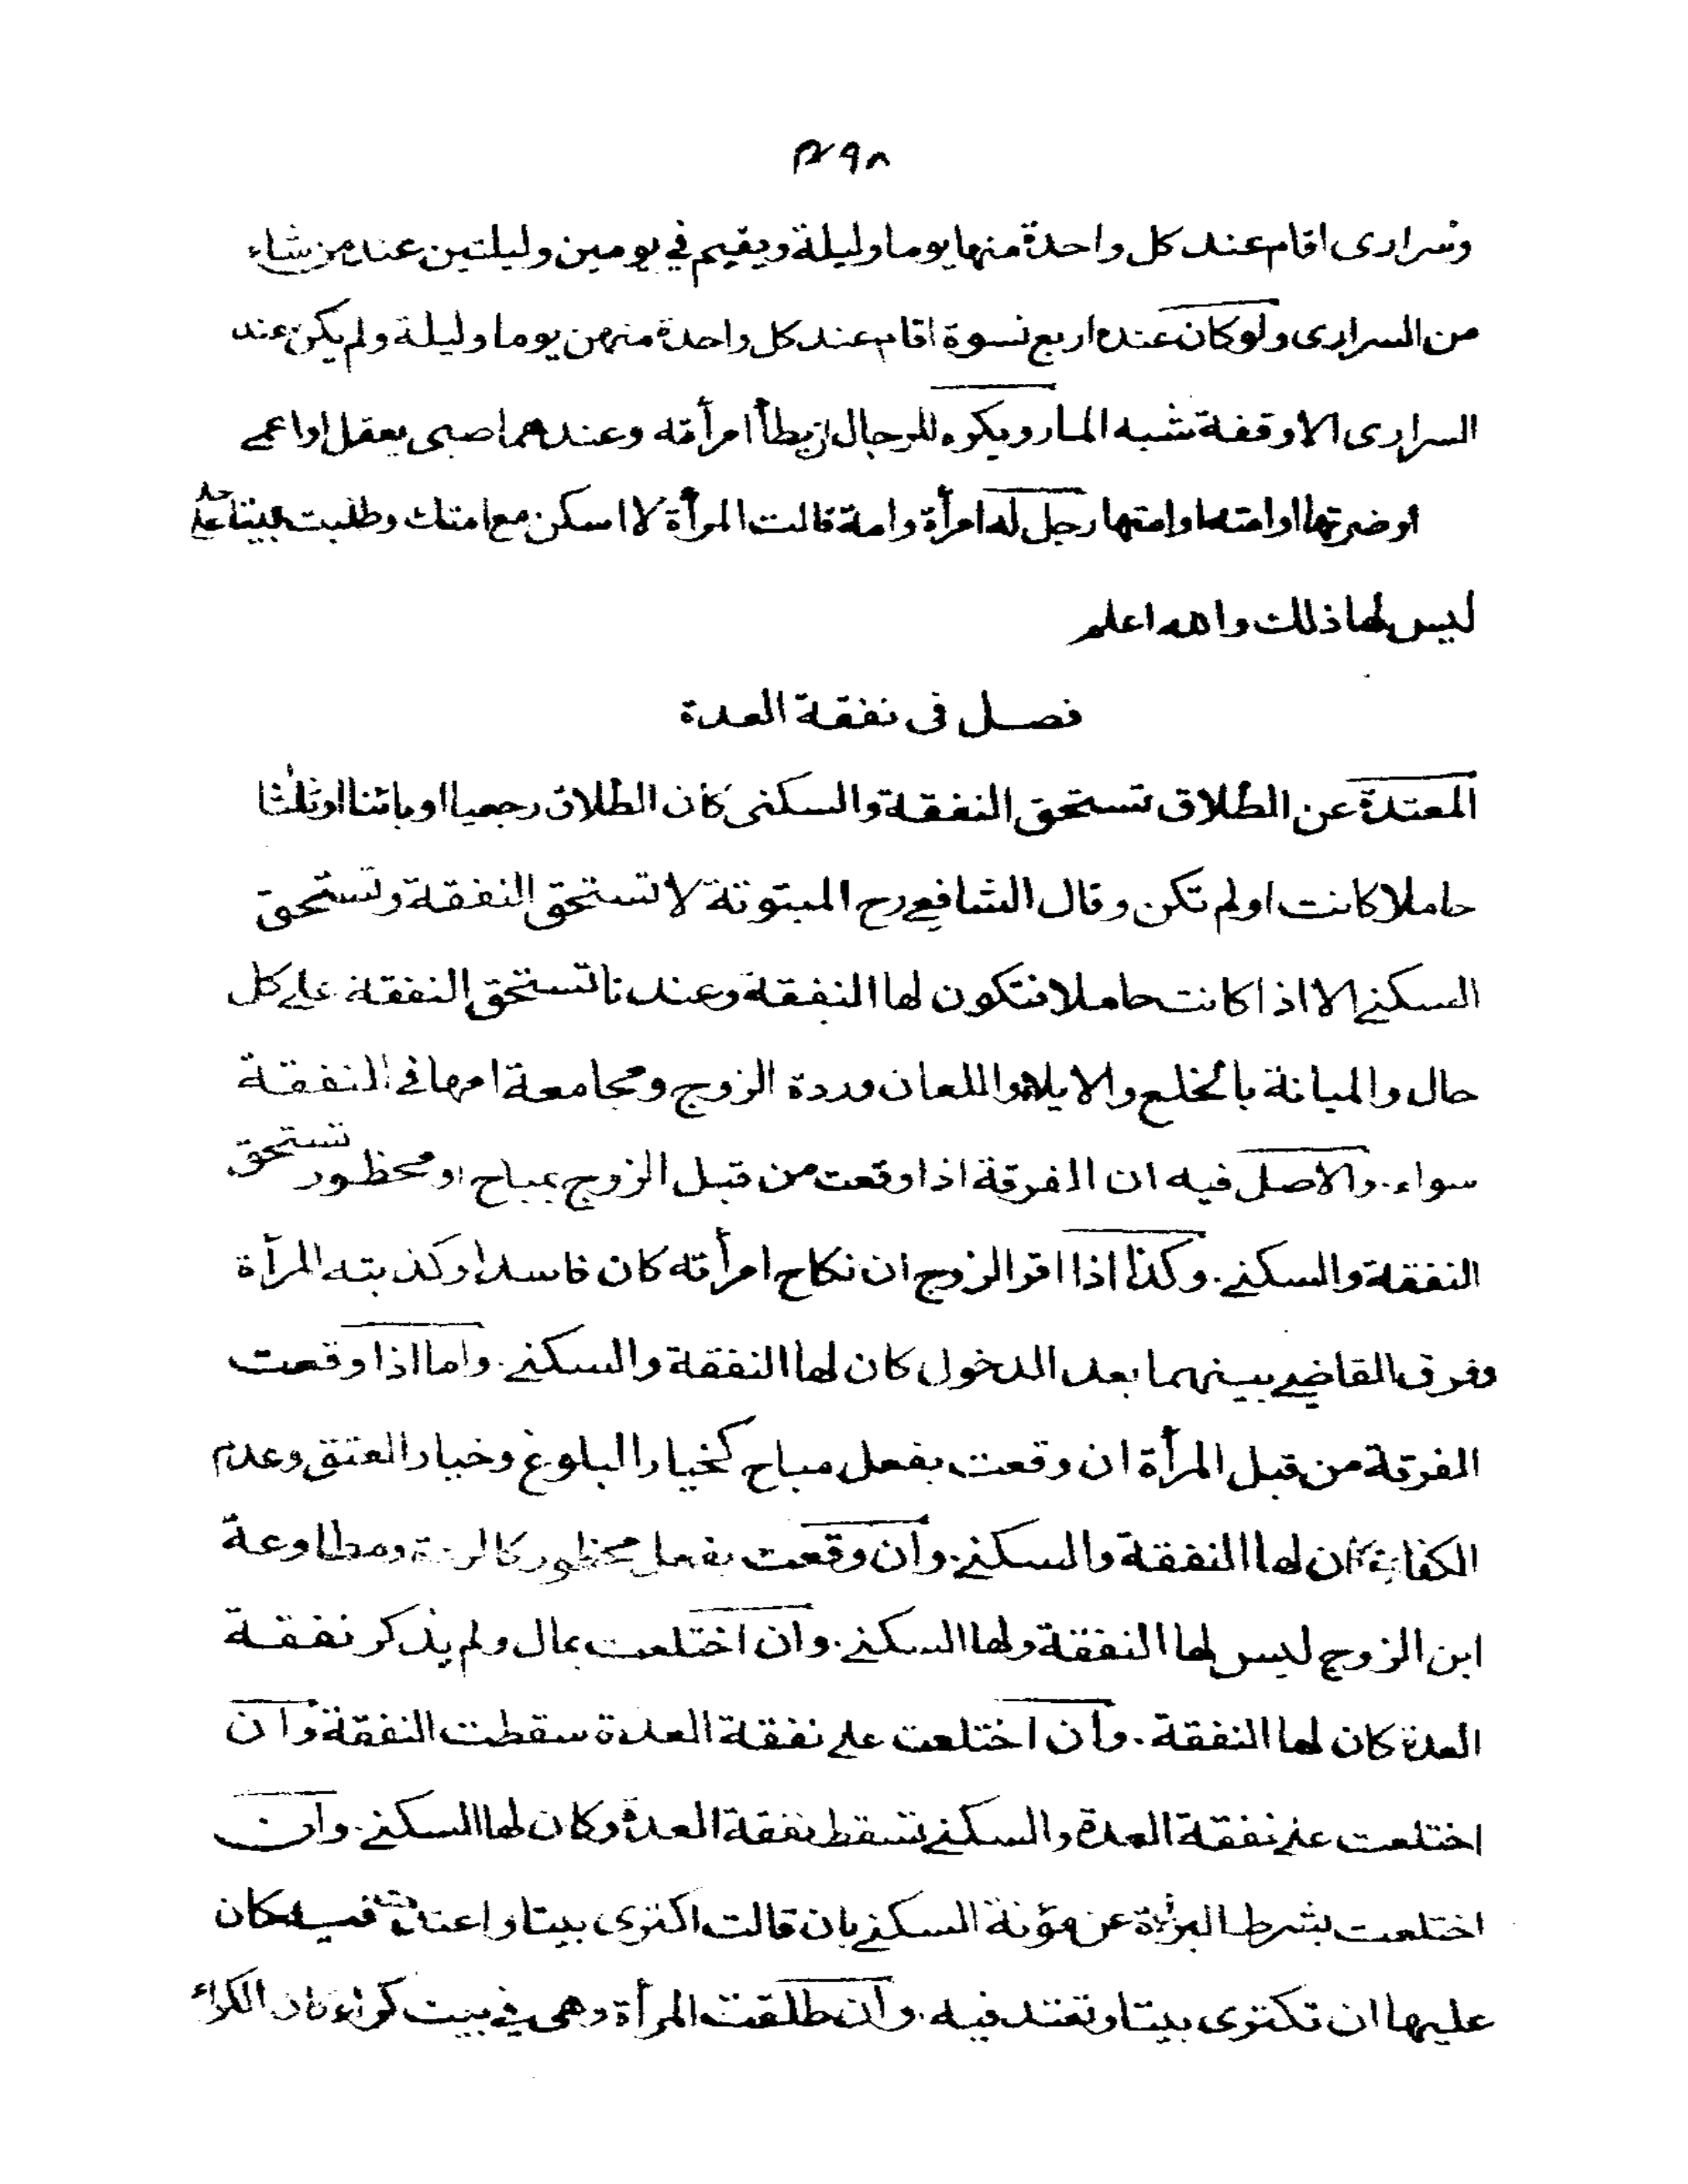 ۴۹۸
وسرارى اقام عند كل واحدة منها يوما وليلة ويقيم في يومين وليلتين عند من شاء
من السرارى ولو كان عنده اربع نسوة اقام عند كل واحدة منهن يوما وليلة ولم يكن عند
السرارى الا وقفة شبه المار ويكره للرجال ان يطأ امرأته وعندهما صبى يعقل او اعمى
او ضرتها او امته او امتها رجل له امرأة وامة قالت المرأة لا اسكن مع امتك وطلبت بيتا على حدة
ليس لها ذلك والله اعلم
فصل فى نفقة العدة
المعتدة عن الطلاق تستحق النفقة والسكنى كان الطلاق رجعيا او بائنا او ثلثا
حاملا كانت او لم تكن وقال الشافعي رح المبتوتة لا تستحق النفقة وتستحق
السكنى الا اذا كانت حاملا فتكون لها النفقة وعندنا تستحق النفقة على كل
حال والمبانة بالخلع والايلاء واللعان وردة الزوج ومجامعة امها في النفقة
سواء. والاصل فيه ان الفرقة اذا وقعت من قبل الزوج بمباح او محظور تستحق
النفقة والسكنى. وكذا اذا اقر الزوج ان نكاح امرأته كان فاسدا وكذبته المرأة
وفرق القاضي بينهما بعد الدخول كان لها النفقة والسكنى. واما اذا وقعت
الفرقة من قبل المرأة ان وقعت بفعل مباح كخيار البلوغ وخيار العتق وعدم
الكفاءة كان لها النفقة والسكنى. وان وقعت بفعل محظور كالردة ومطاوعة
ابن الزوج ليس لها النفقة ولها السكنى. وان اختلعت بمال ولم يذكر نفقة
العدة كان لها النفقة. وان اختلعت على نفقة العدة سقطت النفقة وان
اختلعت على نفقة العدة والسكنى تسقط نفقة العدة وكان لها السكنى. وان
اختلعت بشرط البراءة عن مؤنة السكنى بان قالت اكترى بيتا واعتد فيه كان
عليها ان تكترى بيتا وتعتد فيه. وان طلقت المرأة وهى في بيت كراء كان الكراء